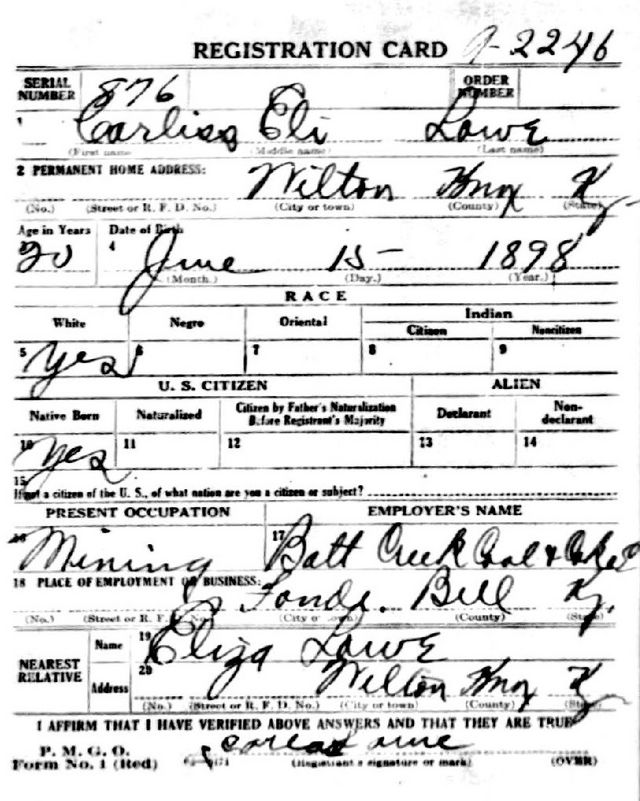 REGISTRATION CARD 2246
SERIAL NUMBER 876 ORDER NUMBER
1 Carliss Eli Lowe
(First name) (Middle name) (Last name)
2 PERMANENT HOME ADDRESS: Wilton Knox Ky.
(No.) (Street or R. F. D. No.) (City or town) (County) (State)
Age in Years Date of Birth
20 4 June 15- 1898
(Month.) (Day.) (Year.)
RACE
White Negro Oriental Indian
Citizen Noncitizen
5 Yes 6 7 8 9
U. S. CITIZEN ALIEN
Native Born Naturalized Citizen by Father's Naturalization Before Registrant's Majority Declarant Non-declarant
10 Yes 11 12 13 14
15
If not a citizen of the U. S., of what nation are you a citizen or subject?
PRESENT OCCUPATION EMPLOYER'S NAME
16 Mining 17 Batt Creek Coal & Coke
18 PLACE OF EMPLOYMENT OR BUSINESS:
Fonde. Bell Ky.
(No.) (Street or R. F. D. No.) (City or town) (County) (State)
NEAREST RELATIVE Name 19 Eliza Lowe
Address 20 Wilton Knox Ky
(No.) (Street or R. F. D. No.) (City or town) (County) (State)
I AFFIRM THAT I HAVE VERIFIED ABOVE ANSWERS AND THAT THEY ARE TRUE
P. M. G. O.
Form No. 1 (Red) (Registrant's signature or mark) (OVER)